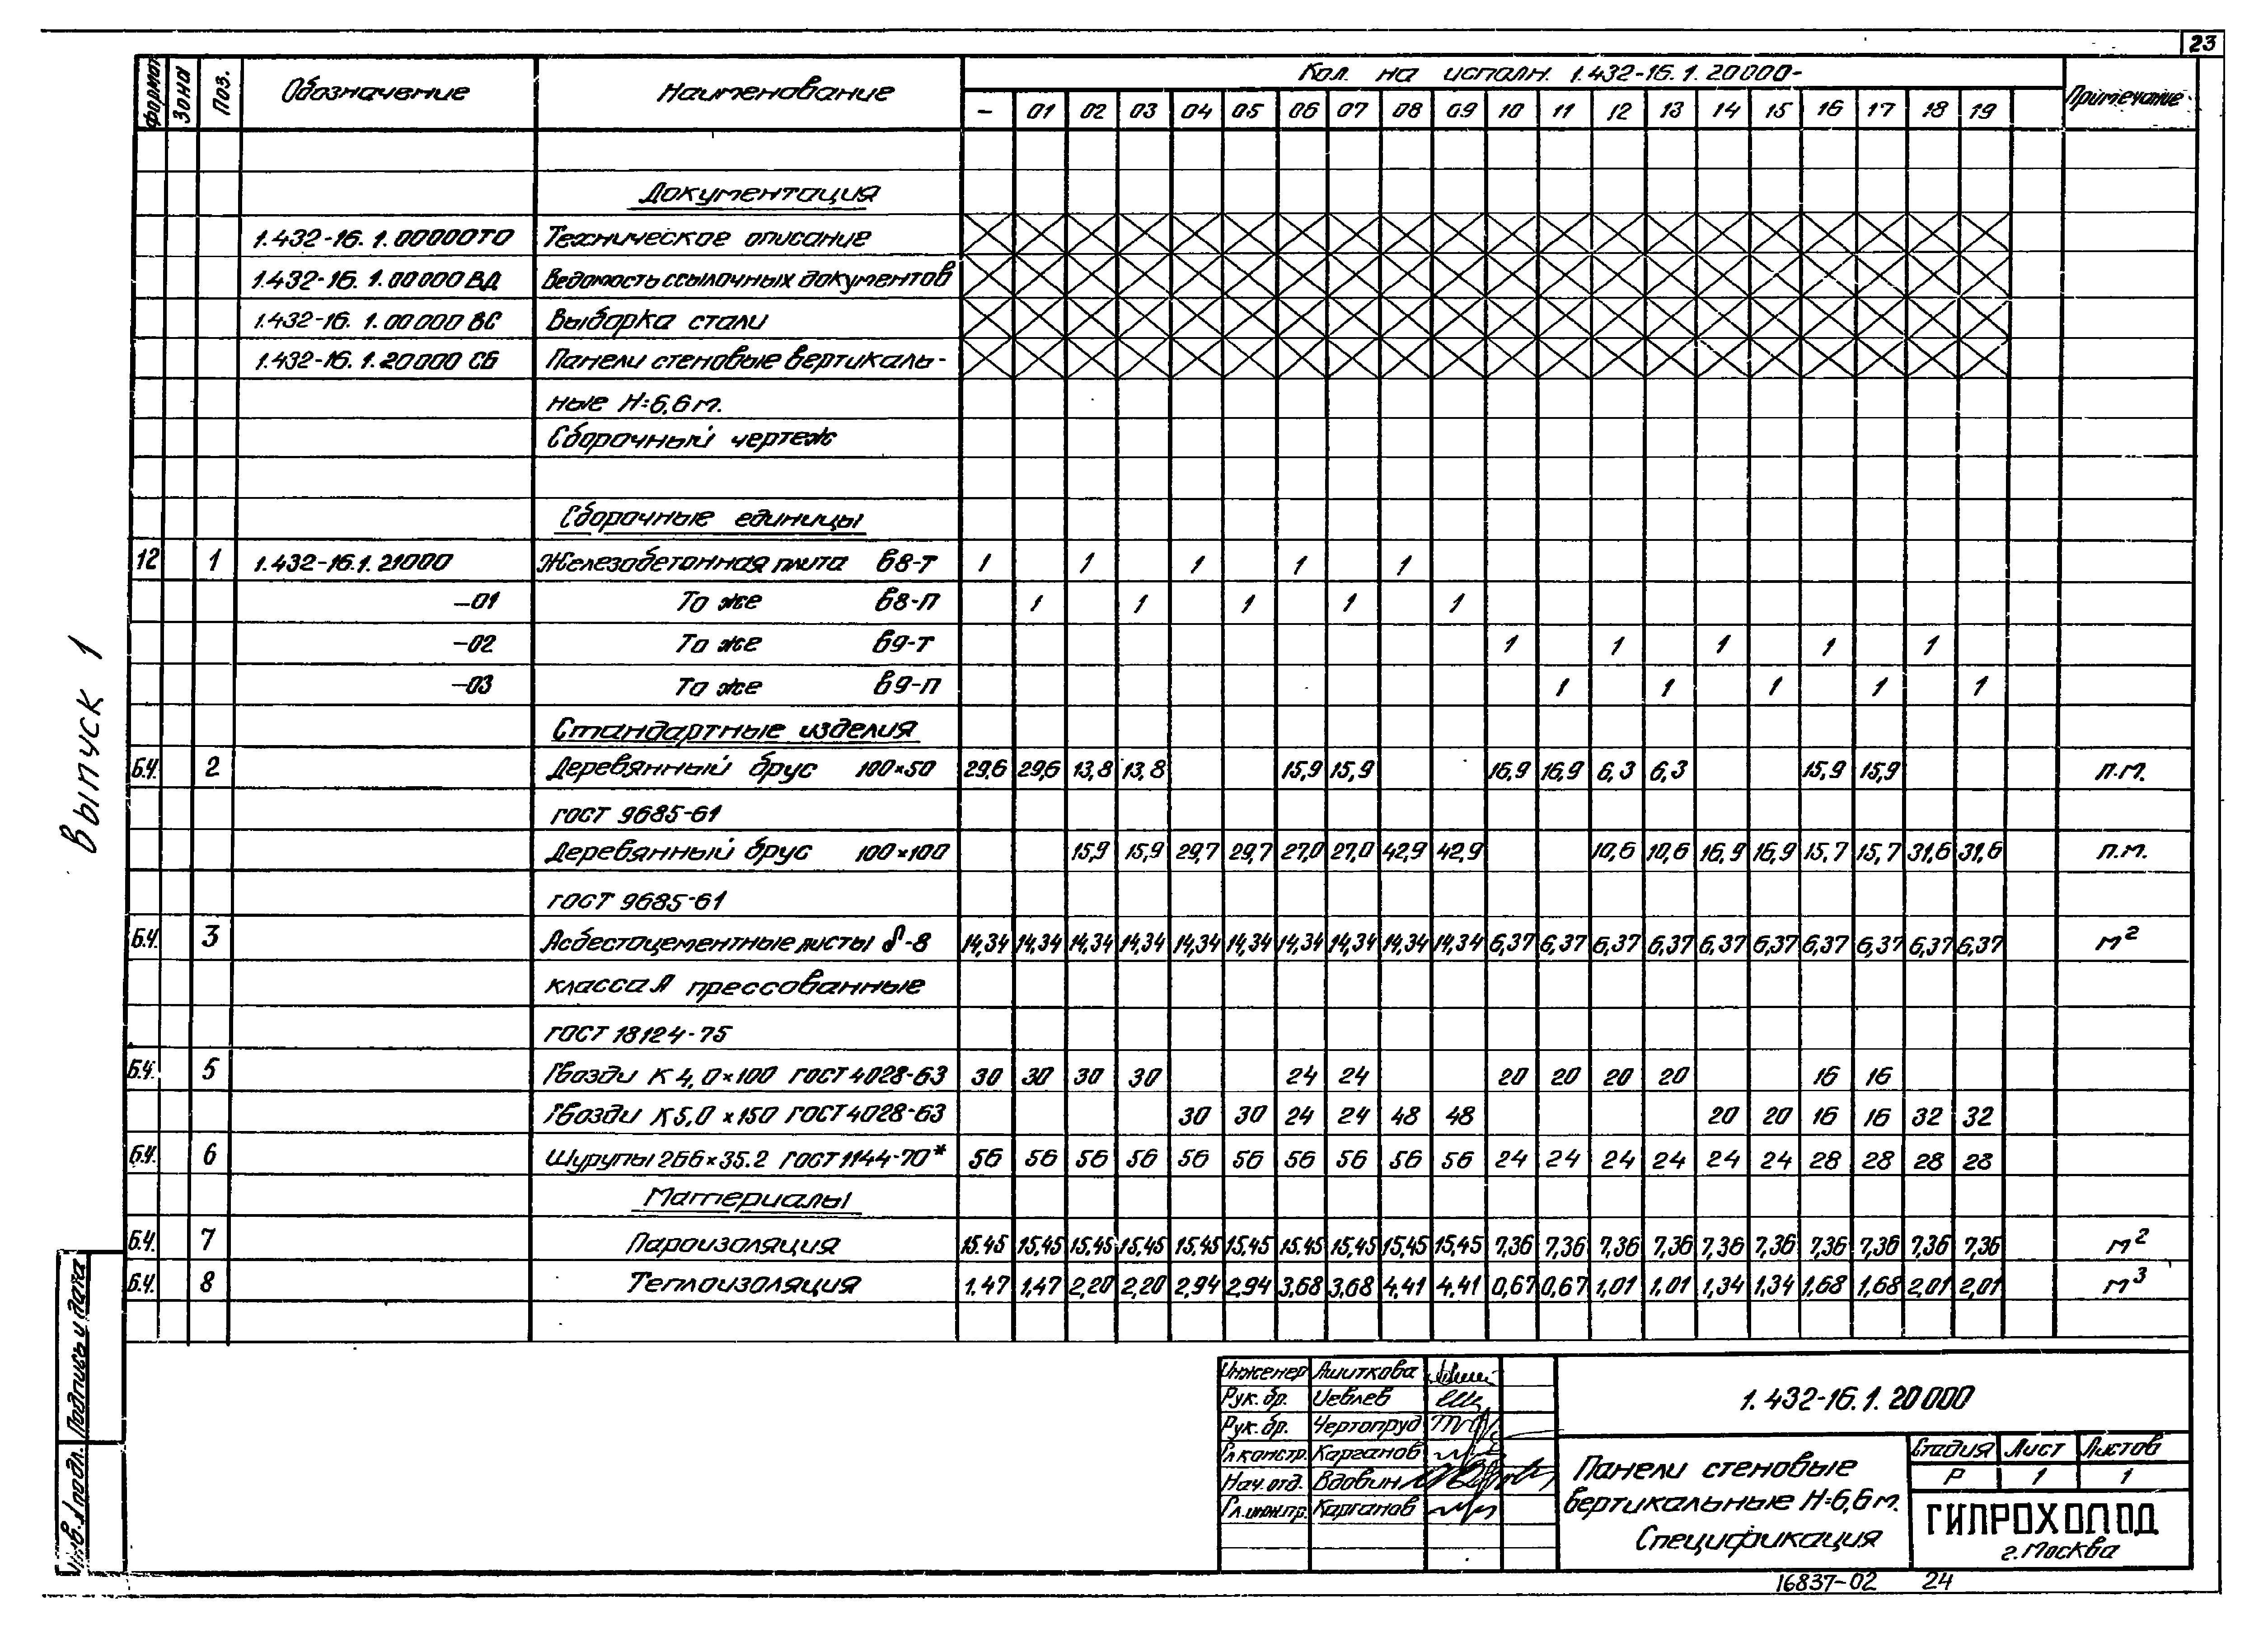 23
Формат Зона Поз. Обозначение Наименование Кол. на исполн. 1.432-16.1.20000- Примечание
– 01 02 03 04 05 06 07 08 09 10 11 12 13 14 15 16 17 18 19
Документация
1.432-16.1.00000ТО Техническое описание
1.432-16.1.00000 ВД Ведомость ссылочных документов
1.432-16.1.00000 ВС Выборка стали
1.432-16.1.20000 СБ Панели стеновые вертикаль-
ные Н=6,6м.
Сборочный чертеж
Сборочные единицы
12 1 1.432-16.1.21000 Железобетонная плита В8-Т 1 1 1 1 1
-01 То же В8-П 1 1 1 1 1
-02 То же В9-Т 1 1 1 1 1
-03 То же В9-П 1 1 1 1 1
Стандартные изделия
Б.Ч. 2 Деревянный брус 100×50 29,6 29,6 13,8 13,8 15,9 15,9 16,9 16,9 6,3 6,3 15,9 15,9 п.м.
ГОСТ 9685-61
Деревянный брус 100×100 15,9 15,9 29,7 29,7 27,0 27,0 42,9 42,9 10,6 10,6 16,9 16,9 15,7 15,7 31,6 31,6 п.м.
ГОСТ 9685-61
Б.Ч. 3 Асбестоцементные листы δ-8 14,34 14,34 14,34 14,34 14,34 14,34 14,34 14,34 14,34 14,34 6,37 6,37 6,37 6,37 6,37 6,37 6,37 6,37 6,37 6,37 м²
класса А прессованные
ГОСТ 18124-75
Б.Ч. 5 Гвозди К 4,0×100 ГОСТ 4028-63 30 30 30 30 24 24 20 20 20 20 16 16
Гвозди К5,0×150 ГОСТ 4028-63 30 30 24 24 48 48 20 20 16 16 32 32
Б.Ч. 6 Шурупы 266×35.2 ГОСТ 1144-70* 56 56 56 56 56 56 56 56 56 56 24 24 24 24 24 24 28 28 28 28
Материалы
Б.Ч. 7 Пароизоляция 15.45 15,45 15,45 15,45 15,45 15,45 15.45 15,45 15,45 15,45 7,36 7,36 7,36 7,36 7,36 7,36 7,36 7,36 7,36 7,36 м²
Б.Ч. 8 Теплоизоляция 1.47 1,47 2,20 2,20 2,94 2,94 3,68 3,68 4,41 4,41 0,67 0,67 1,01 1,01 1,34 1,34 1,68 1,68 2,01 2,01 м³
Выпуск 1
Подпись и дата
Инв.№ подл.
Инженер Ашиткова
Рук. бр. Иевлев
Рук. бр. Чертопруд
Гл.констр. Карганов
Нач. отд. Вдовин
Гл.инж.пр. Карганов
1.432-16.1.20000
Панели стеновые
вертикальные Н=6,6м.
Спецификация
Стадия Лист Листов
Р 1 1
ГИПРОХОЛОД
г. Москва
16837-02 24